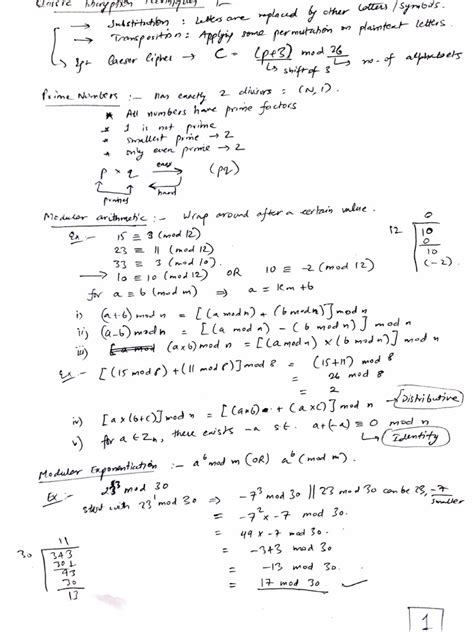 Classic Encryption Techniques :-
→ Substitution : Letters are replaced by other letters/symbols.
→ Transposition : Applying some permutation on plaintext letters.
→ Caesar Cipher → C = (p+3) mod 26
↳ shift of 3 ↳ no. of alphabets
Prime Numbers :- Has exactly 2 divisors : (N, 1).
* All numbers have prime factors
* 1 is not prime
* smallest prime → 2
* only even prime → 2
p × q easy (pq)
primes hard
Modular arithmetic :- Wrap around after a certain value.
Ex :- 15 ≡ 3 (mod 12)
23 ≡ 11 (mod 12)
33 ≡ 3 (mod 10).
→ 10 ≡ 10 (mod 12) OR 10 ≡ -2 (mod 12)
0
12 10
0
10
(-2)
for a ≡ b (mod m) ⇒ a = km + b
i) (a+b) mod n = [(a mod n) + (b mod n)] mod n
ii) (a-b) mod n = [(a mod n) - (b mod n)] mod n
iii) (a×b) mod n = [(a mod n) × (b mod n)] mod n
Ex :- [(15 mod 8) + (11 mod 8)] mod 8 = (15+11) mod 8
= 26 mod 8
= 2
iv) [a×(b+c)] mod n = [(a×b) + (a×c)] mod n → Distributive
v) for a ∈ Zn, there exists -a s.t. a+(-a) ≡ 0 mod n
↳ Identity
Modular Exponentiation :- a^b mod m (OR) a^b (mod m).
Ex :- 23^3 mod 30
start with 23^1 mod 30 ⇒ -7^3 mod 30 || 23 mod 30 can be 23, -7
smaller
= -7^2 × -7 mod 30.
= 49 × -7 mod 30.
= -343 mod 30
= -13 mod 30.
= 17 mod 30
11
30 343
301
43
30
13
1